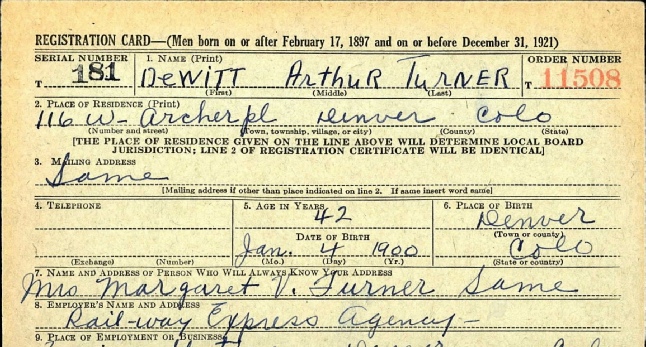 REGISTRATION CARD—(Men born on or after February 17, 1897 and on or before December 31, 1921)
SERIAL NUMBER 1. NAME (Print) ORDER NUMBER
T 181 DeWITT ARTHUR TURNER T 11508
(First) (Middle) (Last)
2. PLACE OF RESIDENCE (Print)
116 W- Archer pl Denver Colo
(Number and street) (Town, township, village, or city) (County) (State)
[THE PLACE OF RESIDENCE GIVEN ON THE LINE ABOVE WILL DETERMINE LOCAL BOARD
JURISDICTION; LINE 2 OF REGISTRATION CERTIFICATE WILL BE IDENTICAL]
3. MAILING ADDRESS
Same
[Mailing address if other than place indicated on line 2. If same insert word same]
4. TELEPHONE 5. AGE IN YEARS 6. PLACE OF BIRTH
42 Denver
DATE OF BIRTH (Town or county)
Jan. 4 1900 Colo
(Exchange) (Number) (Mo.) (Day) (Yr.) (State or country)
7. NAME AND ADDRESS OF PERSON WHO WILL ALWAYS KNOW YOUR ADDRESS
Mrs Margaret V. Turner Same
8. EMPLOYER'S NAME AND ADDRESS
Rail-way Express Agency-
9. PLACE OF EMPLOYMENT OR BUSINESS